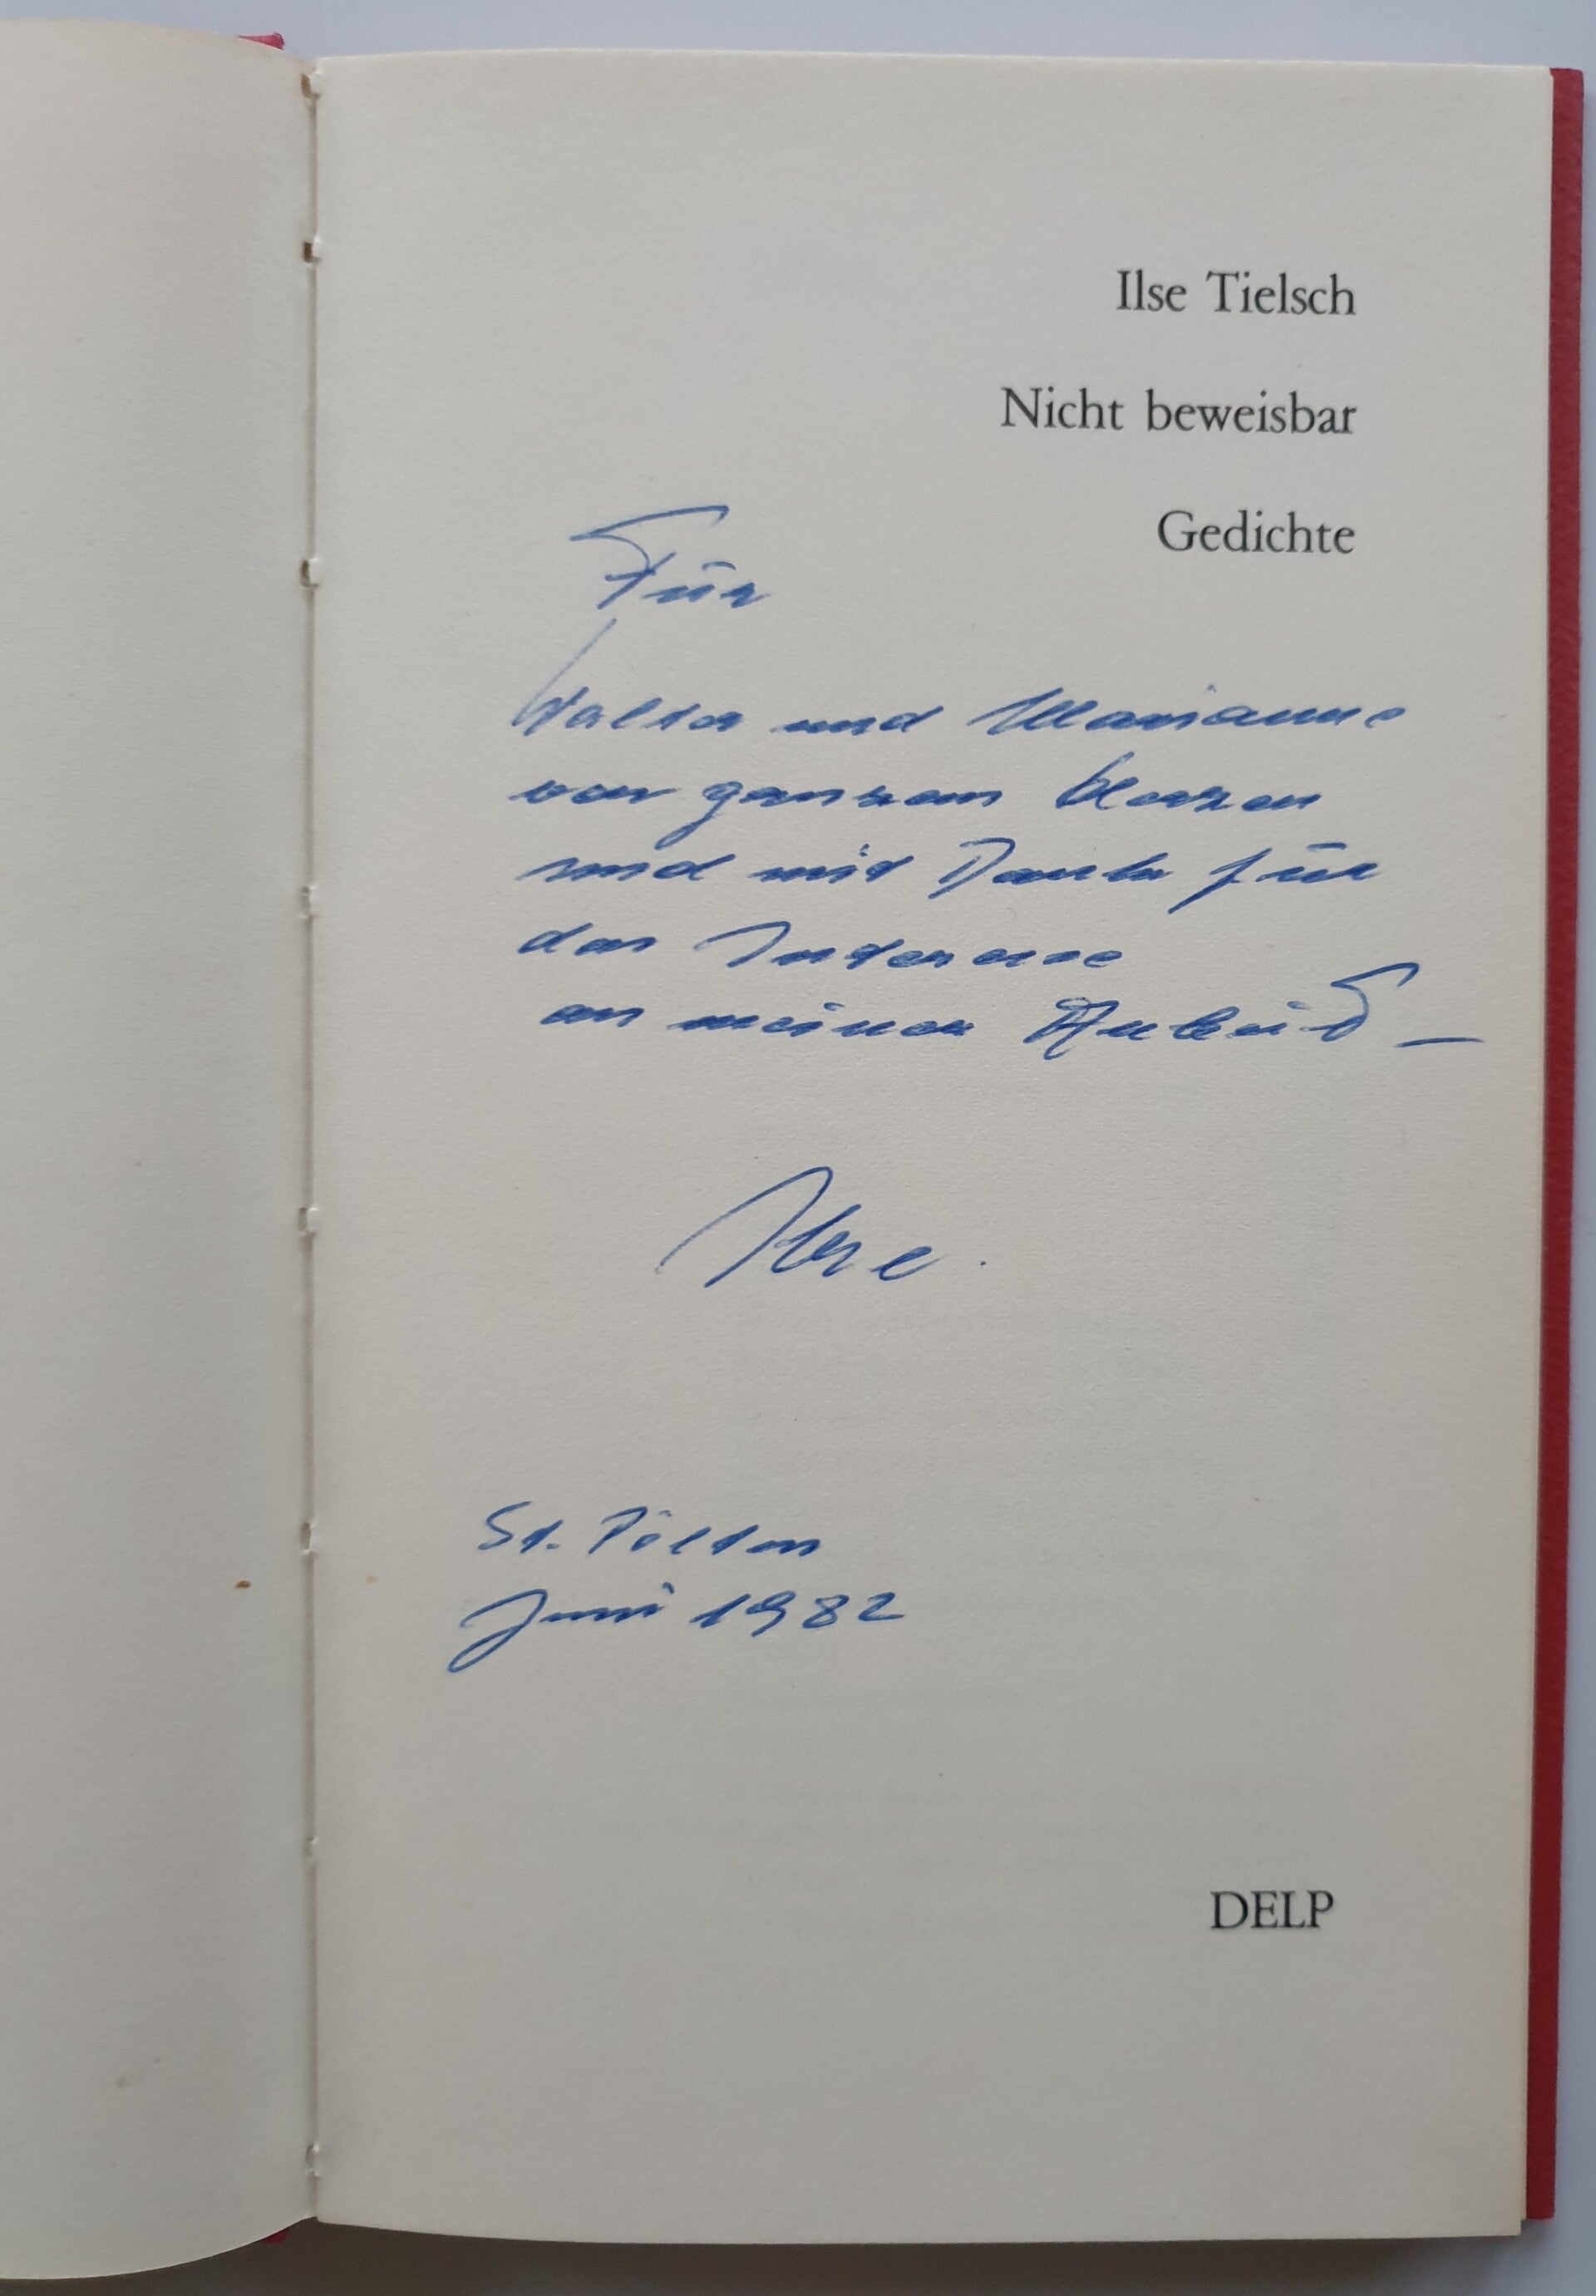 Ilse Tielsch
Nicht beweisbar
Gedichte
Für
Walter und Marianne
von ganzem Herzen
und mit Dank für
das Interesse
an meiner Arbeit –
Ilse.
St. Pölten
Juni 1982
DELP